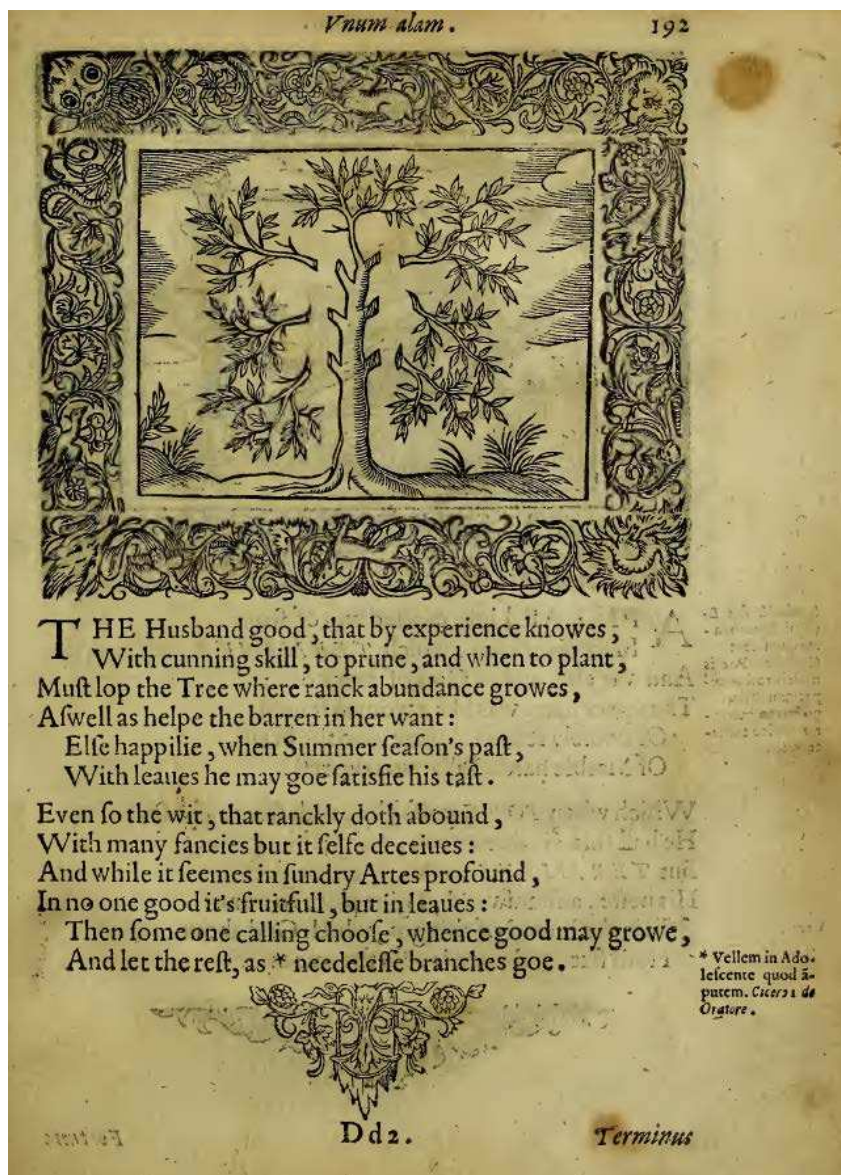 Vnum alam.
192
THE Husband good, that by experience knowes,
With cunning skill, to prune, and when to plant,
Muſt lop the Tree where ranck abundance growes,
Aſwell as helpe the barren in her want:
Elſe happilie, when Summer ſeaſon's paſt,
With leaues he may goe ſatisfie his taſt.
Even ſo the wit, that ranckly doth abound,
With many fancies but it ſelfe deceiues:
And while it ſeemes in ſundry Artes profound,
In no one good it's fruitfull, but in leaues:
Then ſome one calling chooſe, whence good may growe,
And let the reſt, as * needeleſſe branches goe.
* Vellem in Ado-
leſcente quod ā-
putem. Cicero 1 de
Oratore.
Dd2.
Terminus